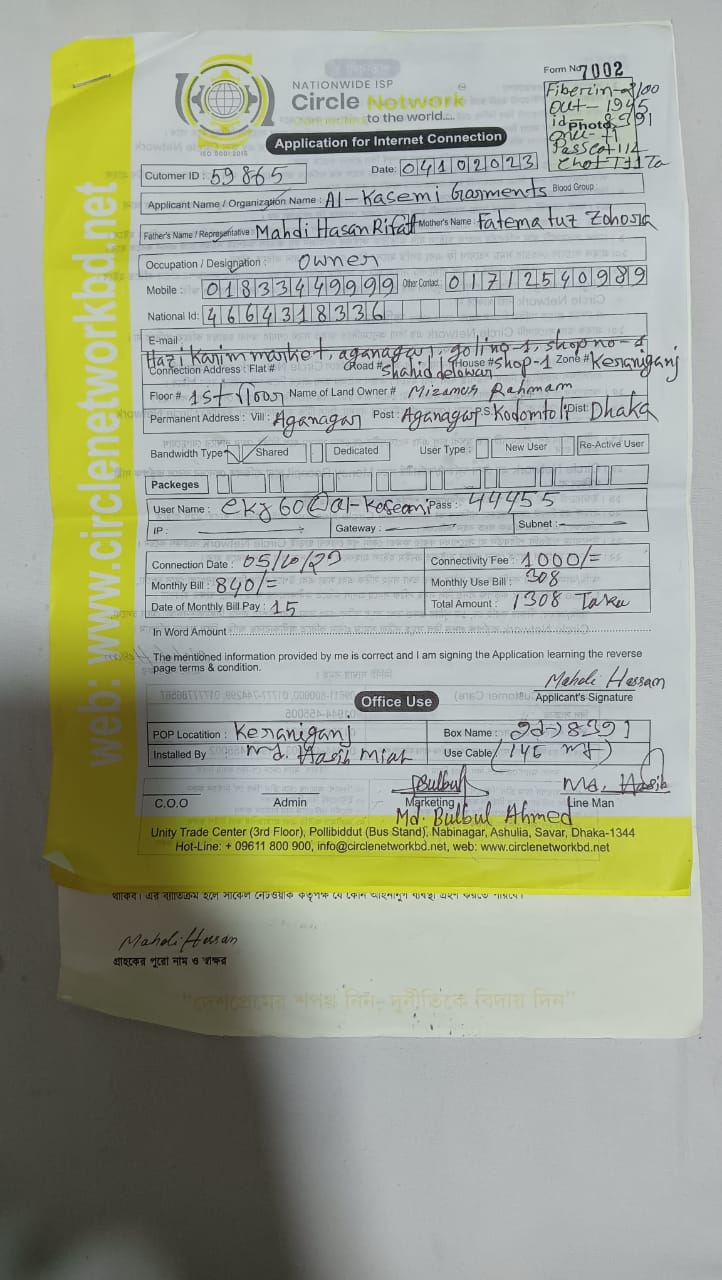 web: www.circlenetworkbd.net
NATIONWIDE ISP
Circle Network
Connecting to the world....
ISO 9001:2015
Application for Internet Connection
Form No 7002
Out- 1945
Photo
Cutomer ID : 59865
Date: 04102023
Applicant Name / Organization Name : Al-Kasemi Garments Blood Group :
Father's Name / Representative : Mahdi Hasan Rifat Mother's Name : Fatema tuz Zohora
Occupation / Designation : Owner
Mobile : 01833449999 Other Contact : 01712540989
National Id: 4664318336
E-mail :
Hazi Karim market, aganagar, goli no-1, shop no-1
Connection Address : Flat # Road # Shahid delowar House # Shop-1 Zone # Keraniganj
Floor # 1st floor Name of Land Owner # Mizanur Rahmam
Permanent Address : Vill : Aganagar Post : Aganagar PS Kodomtoli Dist: Dhaka
Bandwidth Type Shared Dedicated User Type : New User Re-Active User
Packeges
User Name : Pass : 44455
IP : Gateway : Subnet :
Connection Date : 05/10/23 Connectivity Fee : 1000/=
Monthly Bill : 840/= Monthly Use Bill : 308
Date of Monthly Bill Pay : 15 Total Amount : 1308 Taka
In Word Amount
The mentioned information provided by me is correct and I am signing the Application learning the reverse
page terms & condition.
Mahdi Hassan
Applicant's Signature
Office Use
POP Locatition : Keraniganj Box Name :
Installed By Md. Hasib Miah Use Cable (145 mt)
Bulbul Md. Hasib
C.O.O Admin Marketing Line Man
Md. Bulbul Ahmed
Unity Trade Center (3rd Floor), Pollibiddut (Bus Stand), Nabinagar, Ashulia, Savar, Dhaka-1344
Hot-Line: + 09611 800 900, info@circlenetworkbd.net, web: www.circlenetworkbd.net
Mahdi Hassan
গ্রাহকের পুরো নাম ও স্বাক্ষর
"দেশপ্রেমের শপথ নিন- দুর্নীতিকে বিদায় দিন"